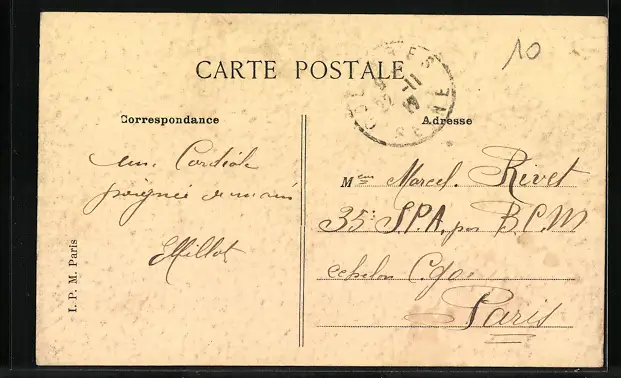 10
CARTE POSTALE
Correspondance
Adresse
une Cordiale
poignée de main
EMillot
Mem Marcel. Rivet
35e S.P.A. par B.C.M
echelon
Paris
I. P. M. Paris
SEINE